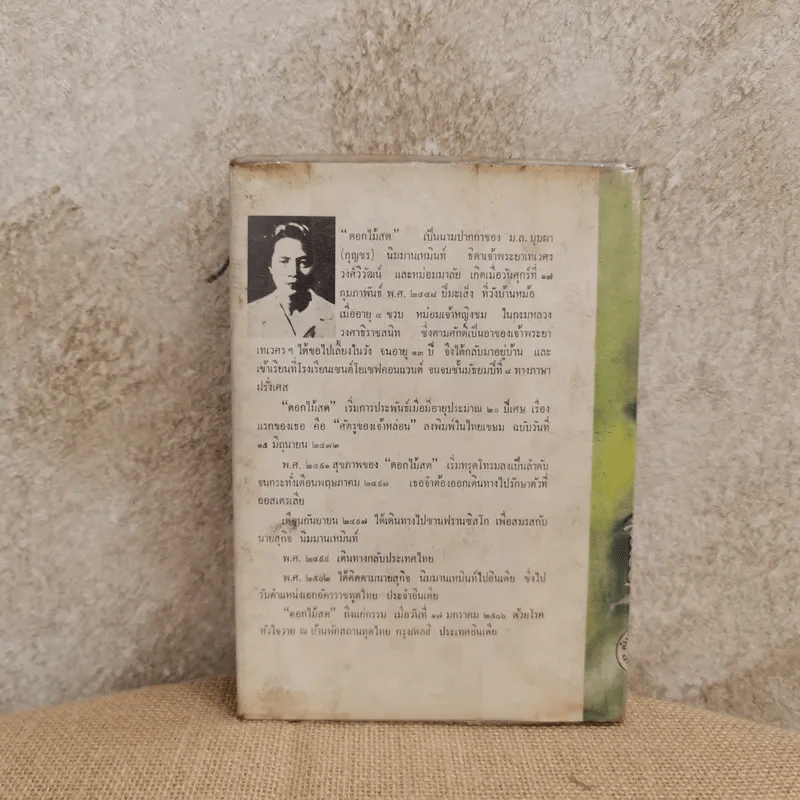 “ดอกไม้สด” เป็นนามปากกาของ ม.ล. บุบผา
(กุญชร) นิมมานเหมินท์ ธิดาเจ้าพระยาเทเวศร
วงศ์วิวัฒน์ และหม่อมมาลัย เกิดเมื่อวันศุกร์ที่ ๑๗
กุมภาพันธ์ พ.ศ. ๒๔๔๘ ปีมะเส็ง ที่วังบ้านหม้อ
เมื่ออายุ ๔ ขวบ หม่อมเจ้าหญิงชม ในกรมหลวง
วงศาธิราชสนิท ซึ่งตามศักดิ์เป็นอาของเจ้าพระยา
เทเวศร ฯ ได้ขอไปเลี้ยงในวัง จนอายุ ๑๓ ปี จึงได้กลับมาอยู่บ้าน และ
เข้าเรียนที่โรงเรียนเซนต์โยเซฟคอนแวนต์ จนจบชั้นมัธยมปีที่ ๘ ทางภาษา
ฝรั่งเศส
“ดอกไม้สด” เริ่มการประพันธ์เมื่อมีอายุประมาณ ๒๐ ปีเศษ เรื่อง
แรกของเธอ คือ “ศัตรูของเจ้าหล่อน” ลงพิมพ์ในไทยเขษม ฉบับวันที่
๑๕ มิถุนายน ๒๔๗๒
พ.ศ. ๒๔๙๑ สุขภาพของ “ดอกไม้สด” เริ่มทรุดโทรมลงเป็นลำดับ
จนกระทั่งเดือนพฤษภาคม ๒๔๙๗ เธอจำต้องออกเดินทางไปรักษาตัวที่
ออสเตรเลีย
เดือนกันยายน ๒๔๙๗ ได้เดินทางไปซานฟรานซิสโก เพื่อสมรสกับ
นายสุกิจ นิมมานเหมินท์
พ.ศ. ๒๔๙๘ เดินทางกลับประเทศไทย
พ.ศ. ๒๕๐๒ ได้ติดตามนายสุกิจ นิมมานเหมินท์ไปอินเดีย ซึ่งไป
รับตำแหน่งเอกอัครราชทูตไทย ประจำอินเดีย
“ดอกไม้สด” ถึงแก่กรรม เมื่อวันที่ ๑๗ มกราคม ๒๕๐๖ ด้วยโรค
หัวใจวาย ณ บ้านพักสถานทูตไทย กรุงเดลฮี ประเทศอินเดีย